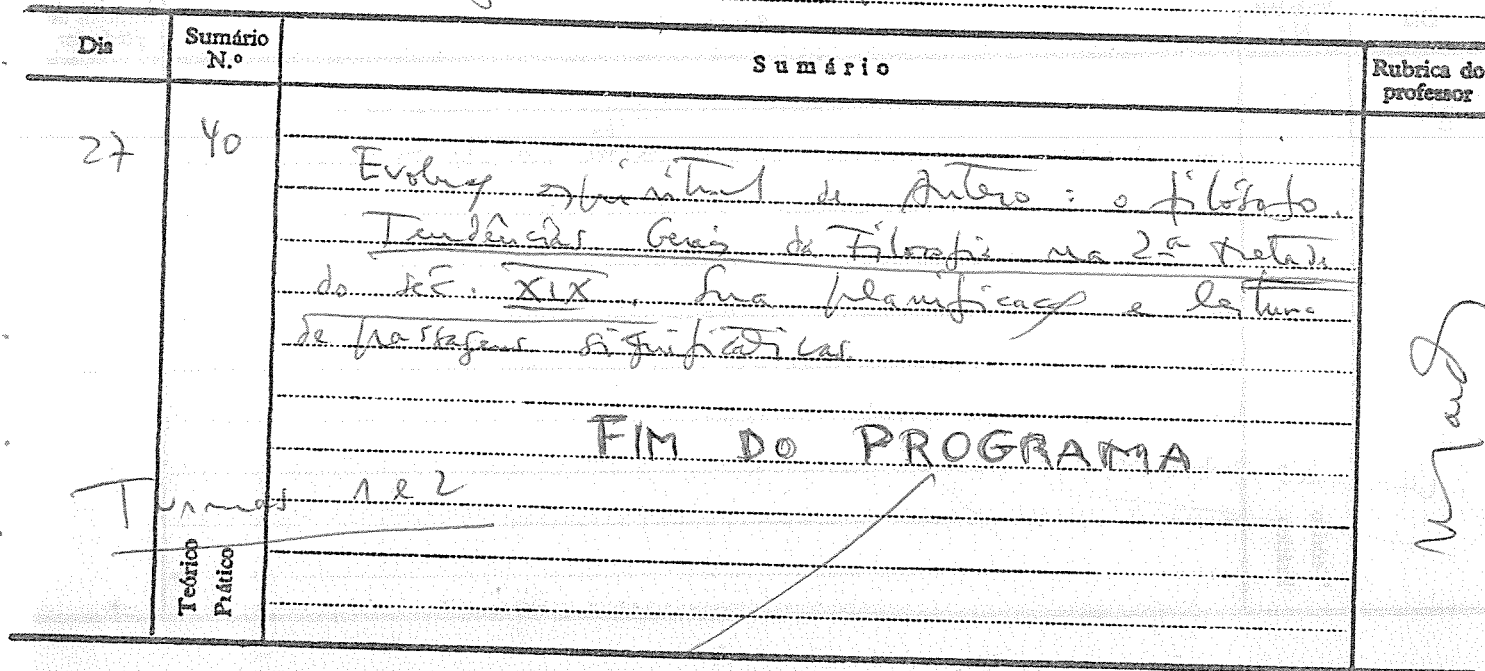 Dia
Sumário N.º
Sumário
Rubrica do professor
27 40
Evolução espiritual de Antero: o filósofo.
Tendências Gerais da Filosofia na 2ª metade
do séc. XIX. Sua planificação e leitura
de passagens significativas.
FIM DO PROGRAMA
Turmas 1 e 2
Teórico
Prático